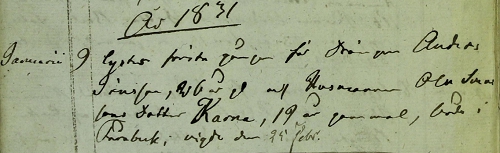 År 1831
Januarii 9 lystes första gången för Drängen Andreas
Jönsson, 26 år och Husmannen Ola
sons Dotter Karna, 19 år gammal, både i
vigde den 25 Febr.